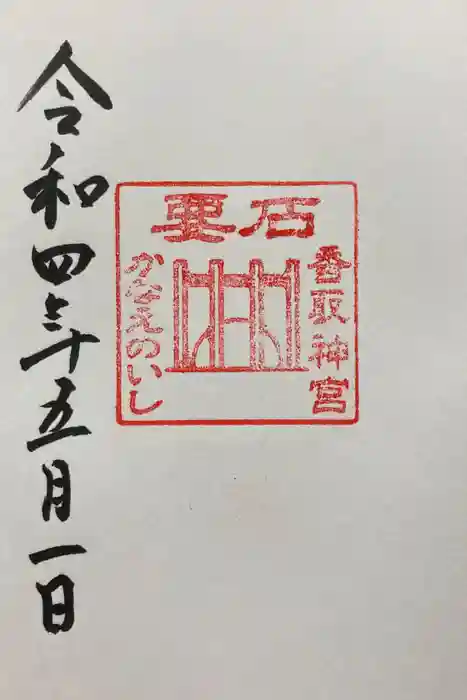 要石
香取神宮
かなえのいし
令和四年五月一日